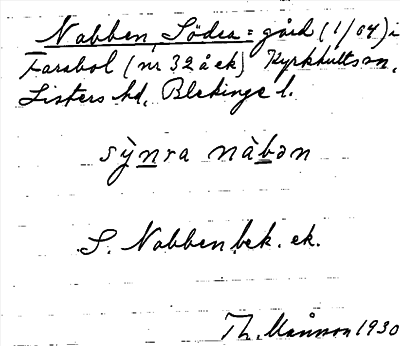 Nabben, Södra = gård (1/64) i
Farabol (nr 32 å ek) Kyrkhults sn,
Listers hd, Blekinge l.
sỳnra nàbən
S. Nabben bek. ek.
Th. Månsson 1930